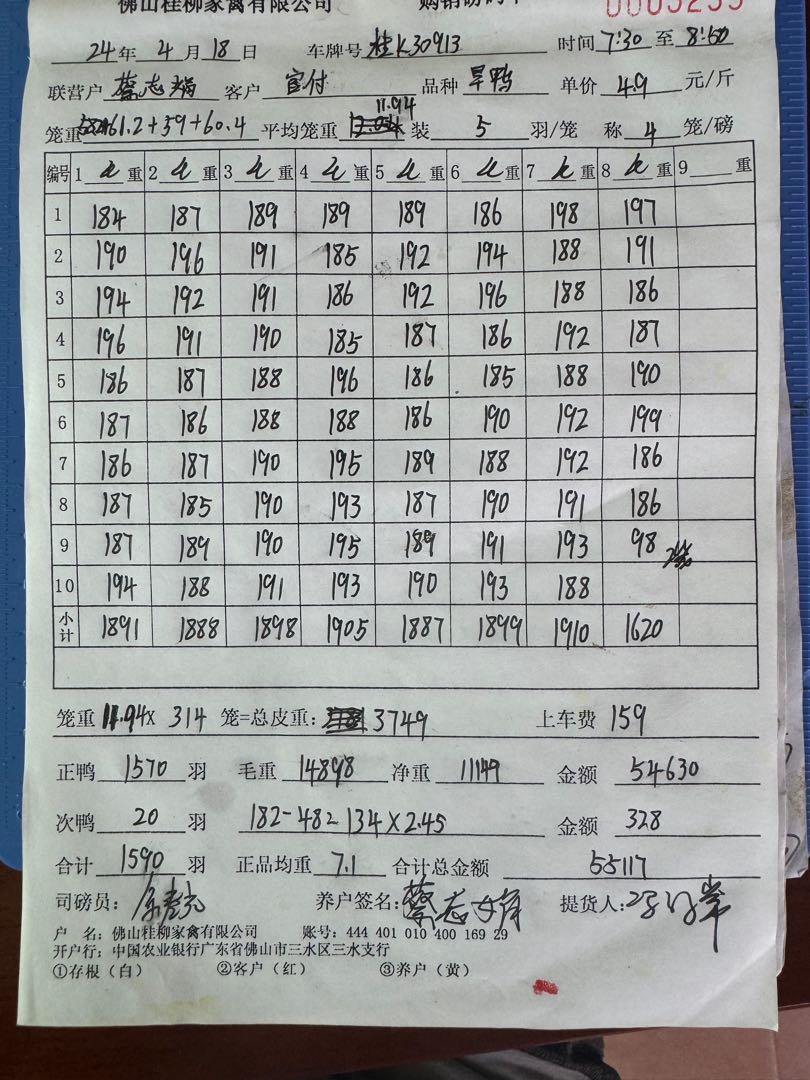 佛山桂柳家禽有限公司 购销磅码单 0005255
24年4月18日 车牌号 桂K30913 时间 7:30 至 8:50
联营户 蔡志娟 客户 官付 品种 旱鸭 单价 4.9 元/斤
笼重 61.2+59+60.4 平均笼重 11.94 装 5 羽/笼 称 4 笼/磅
编号 1 重 2 重 3 重 4 重 5 重 6 重 7 重 8 重 9 重
1 184 187 189 189 189 186 198 197
2 190 196 191 185 192 194 188 191
3 194 192 191 186 192 196 188 186
4 196 191 190 185 187 186 192 187
5 186 187 188 196 186 185 188 190
6 187 186 188 188 186 190 192 199
7 186 187 190 195 189 188 192 186
8 187 185 190 193 187 190 191 186
9 187 189 190 195 189 191 193 98
10 194 188 191 193 190 193 188
小计 1891 1888 1898 1905 1887 1899 1910 1620
笼重 11.94 X 314 笼=总皮重: 3749 上车费 159
正鸭 1570 羽 毛重 14898 净重 11149 金额 54630
次鸭 20 羽 182-48=134X2.45 金额 328
合计 1590 羽 正品均重 7.1 合计总金额 55117
司磅员: 养户签名: 提货人:
户 名: 佛山桂柳家禽有限公司 账号: 444 401 010 400 169 29
开户行: 中国农业银行广东省佛山市三水区三水支行
①存根(白) ②客户(红) ③养户(黄)